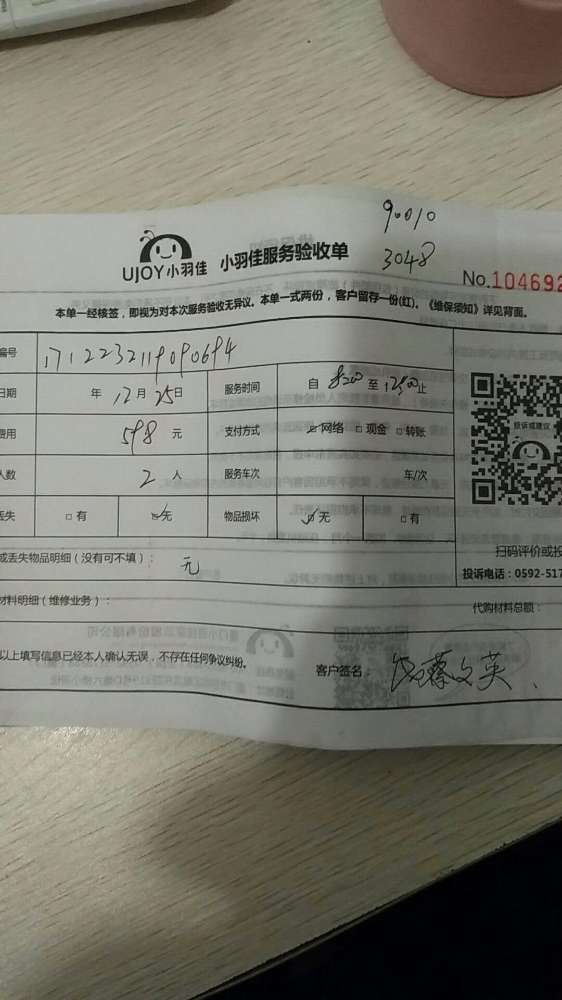 90010
3048
UJOY小羽佳 小羽佳服务验收单
No.104692
本单一经核签，即视为对本次服务验收无异议。本单一式两份，客户留存一份(红)。《维保须知》详见背面。
编号 1712232119090694
日期 年 12月 25日 服务时间 自 8:00 至 12:00止
费用 598 元 支付方式 ☑网络 □现金 □转账
投诉或建议
人数 2 人 服务车次 车/次
丢失 □有 ☑无 物品损坏 ☑无 □有
扫码评价或投
或丢失物品明细（没有可不填）： 无
投诉电话：0592-517
材料明细（维修业务）： 代购材料总额：
以上填写信息已经本人确认无误，不存在任何争议纠纷。 客户签名： 蔡文英